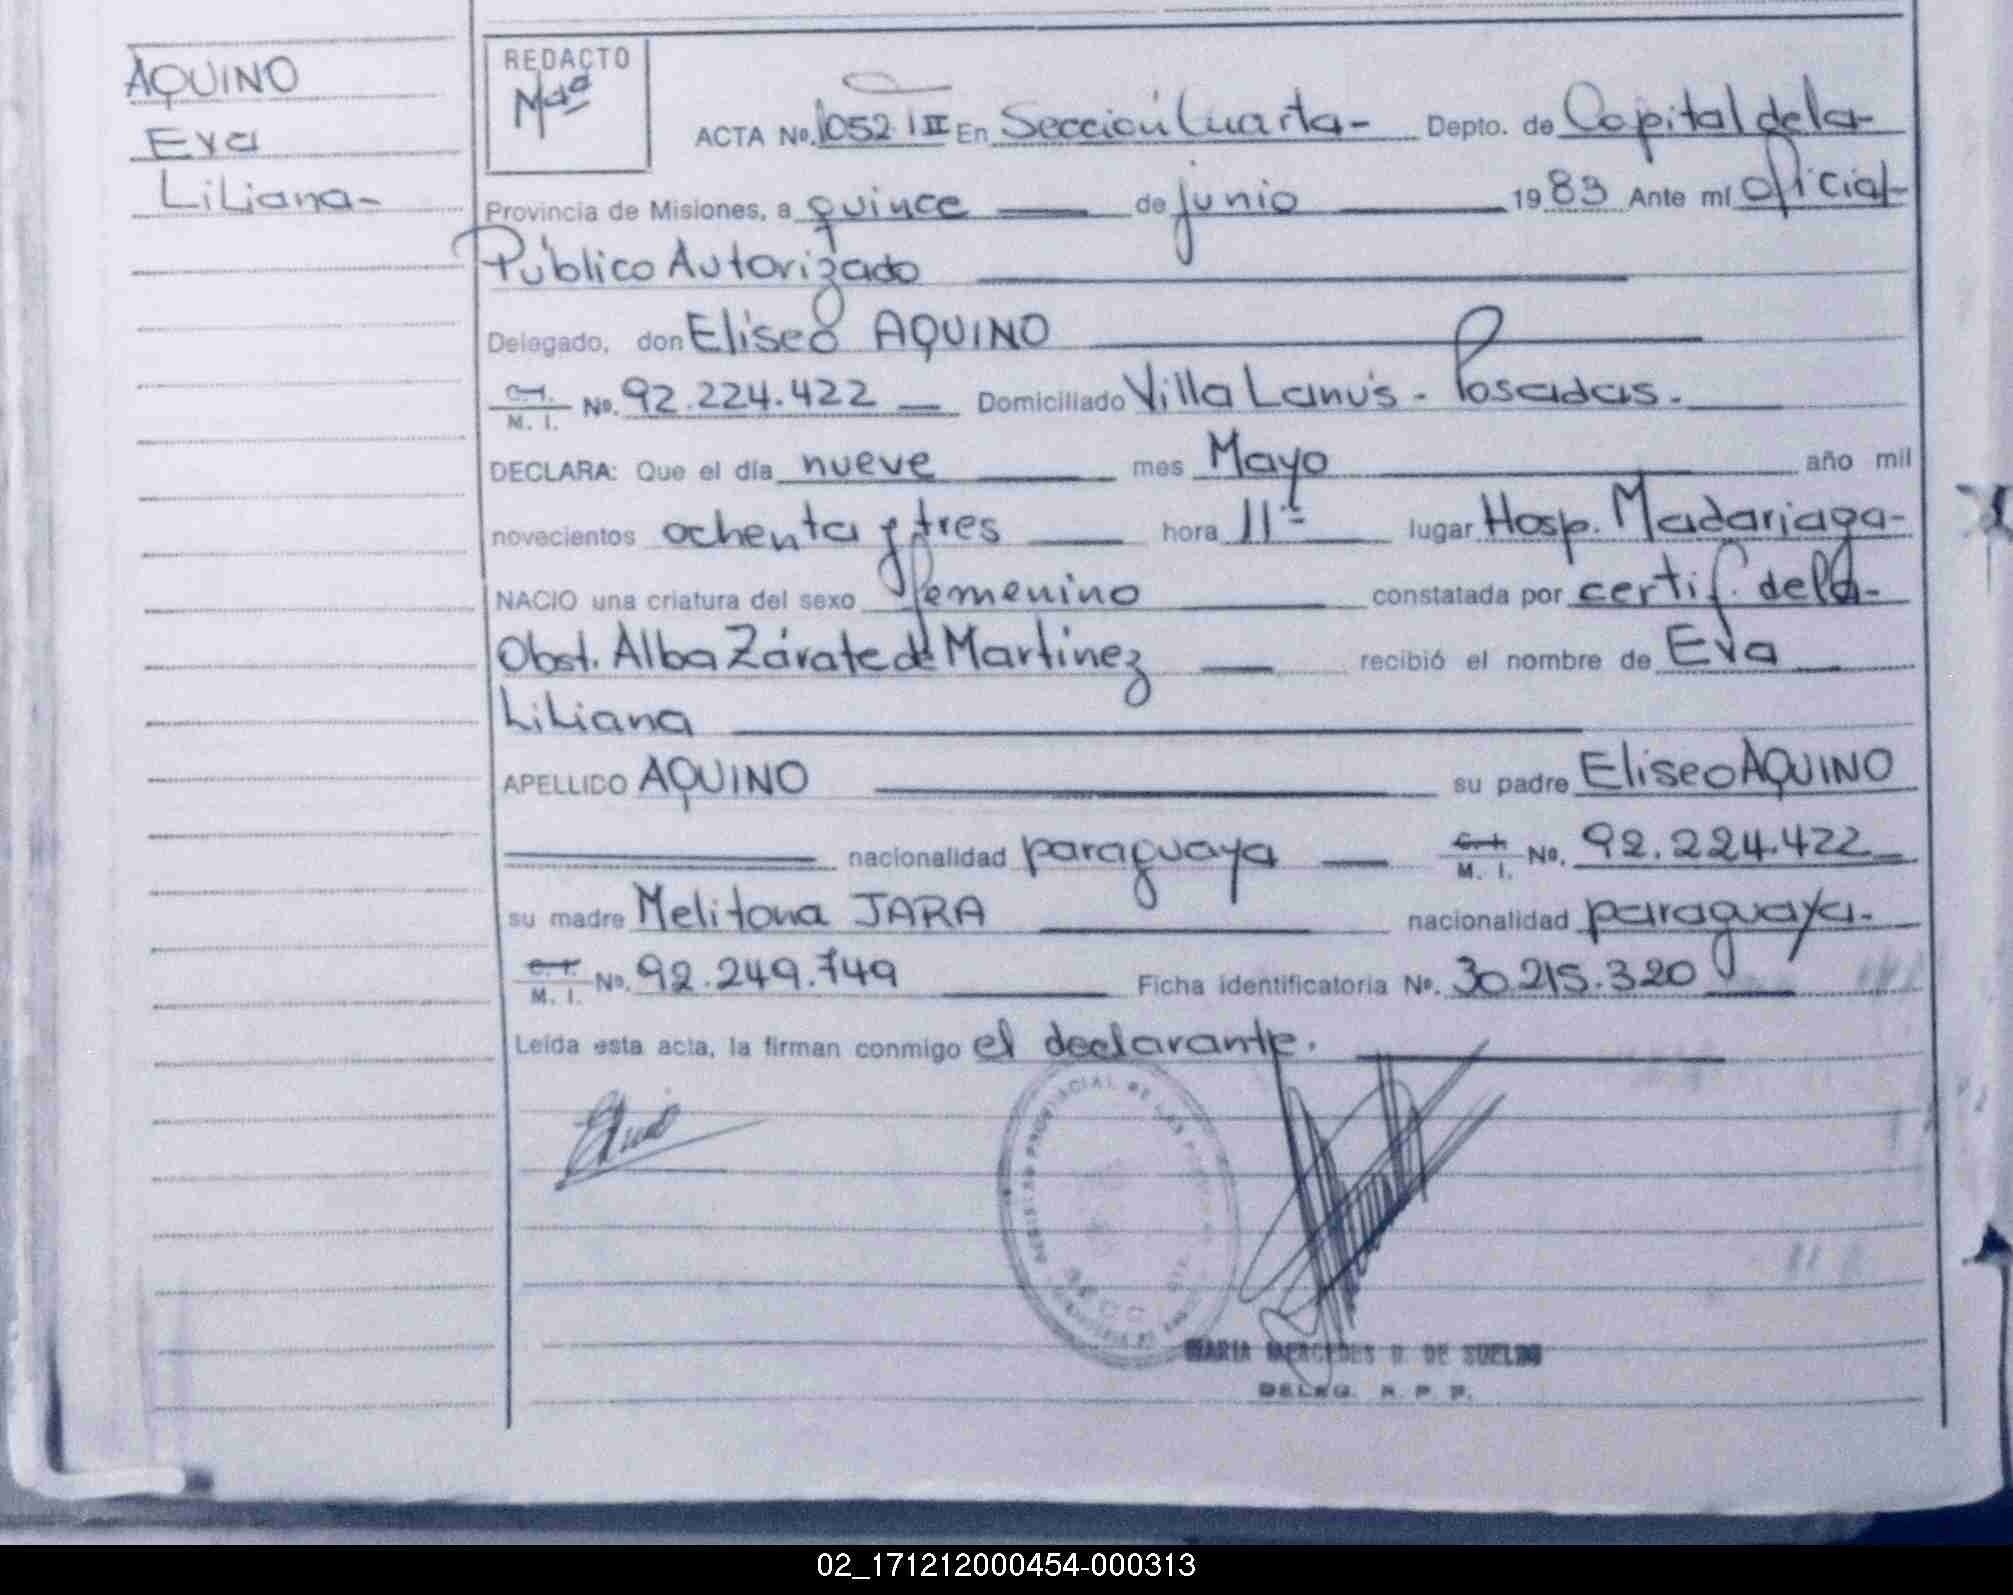 AQUINO
Eva
Liliana-
REDACTO
ACTA No. 1052 III En Sección Cuarta- Depto. de Capital de la-
Provincia de Misiones, a quince de junio 1983 Ante mí oficial-
Público Autorizado
Delegado, don Eliseo AQUINO
C.I.
M. I. No. 92.224.422 Domiciliado Villa Lanús - Posadas.
DECLARA: Que el día nueve mes Mayo año mil
novecientos ochenta y tres hora 11 lugar Hosp. Madariaga-
NACIO una criatura del sexo femenino constatada por certif. de la-
Obst. Alba Zárate de Martinez recibió el nombre de Eva
Liliana
APELLIDO AQUINO su padre Eliseo AQUINO
nacionalidad paraguaya C.I.
M. I. No. 92.224.422
su madre Melitona JARA nacionalidad paraguaya.
C.I.
M. I. No. 92.249.749 Ficha identificatoria No. 30.215.320
Leída esta acta, la firman conmigo el declarante.
MARIA MERCEDES DE SUELDO
DELEG. R. P. P.
02_171212000454-000313